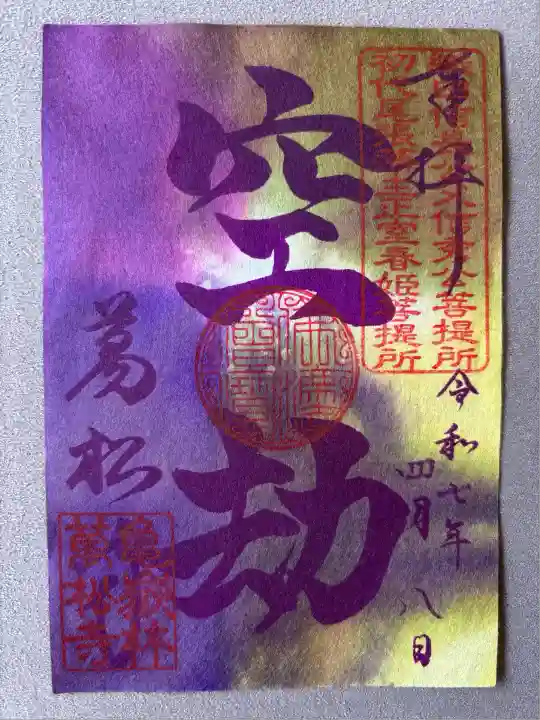 奉拝
初代尾張藩主正室春姫菩提所
令和七年
四月八日
空劫
萬松
亀嶽林
萬松寺